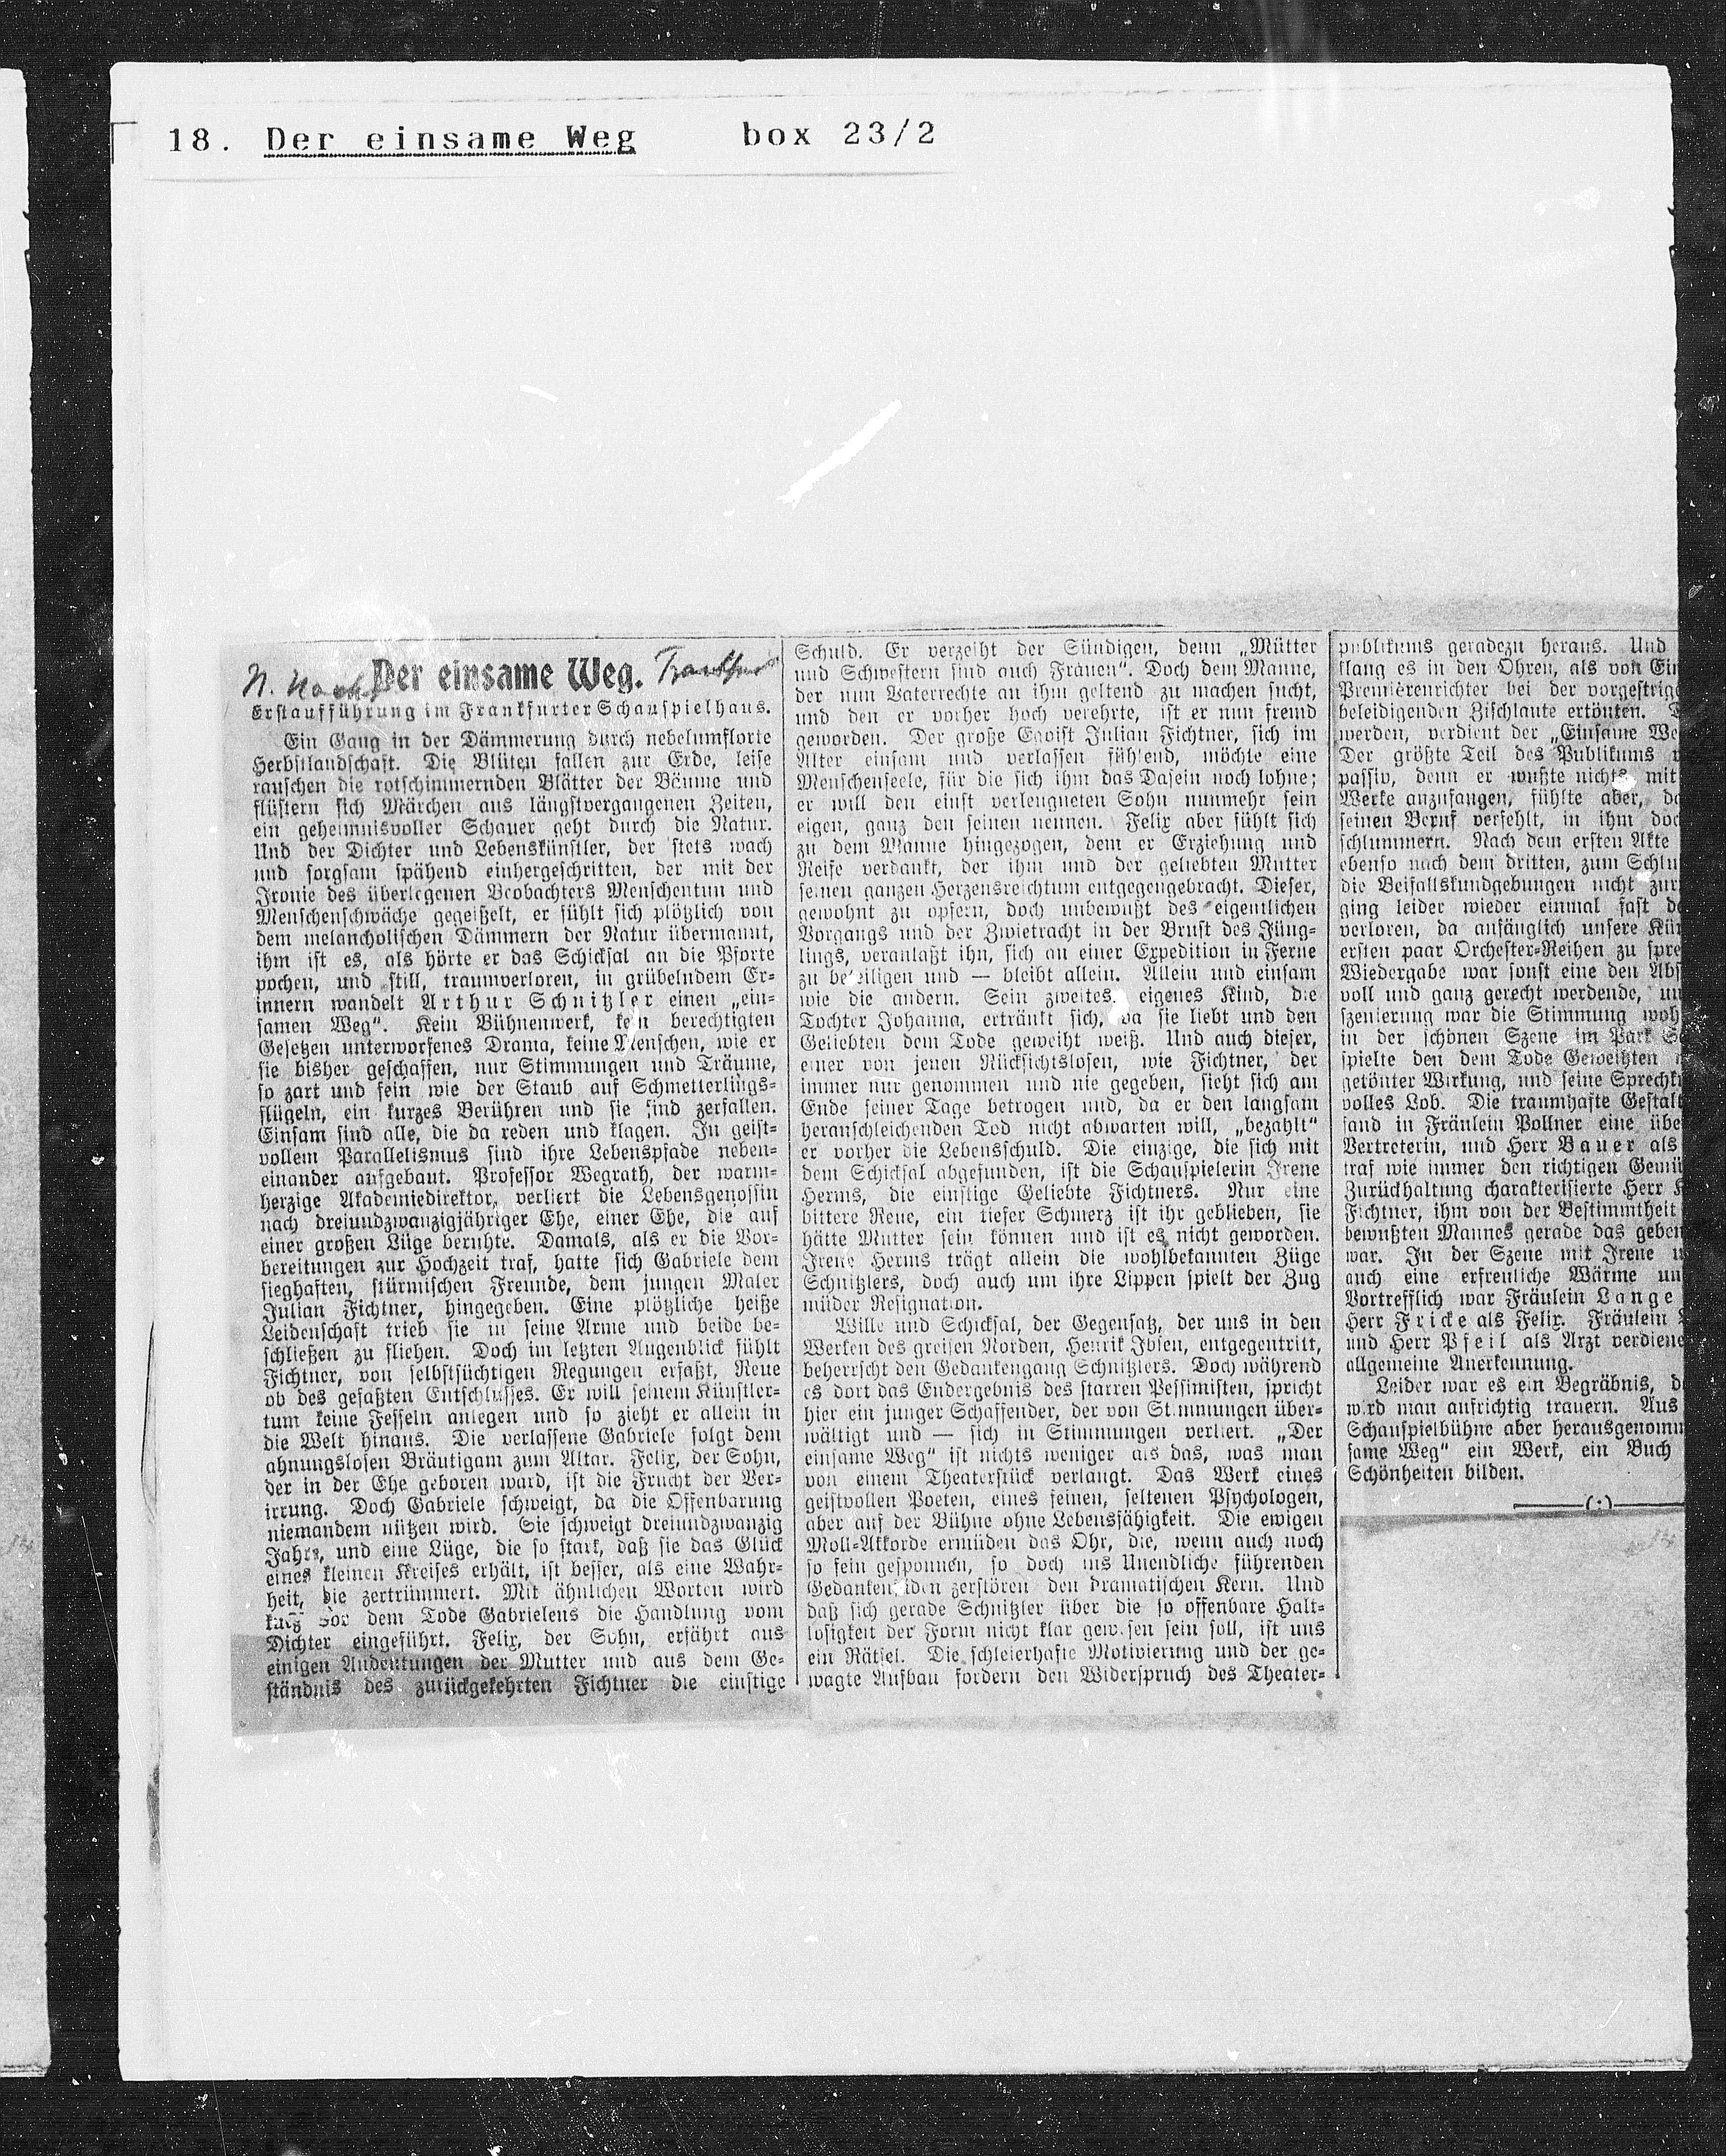 18. Der einsame Weg box 23/2
N. Nach
Der einsame Weg.
Erstaufführung im Frankfurter Schauspielhaus.
Ein Gang in der Dämmerung durch nebelumflorte
Herbstlandschaft. Die Blüten fallen zur Erde, leise
rauschen die rotschimmernden Blätter der Bäume und
flüstern sich Märchen aus längstvergangenen Zeiten,
ein geheimnisvoller Schauer geht durch die Natur.
Und der Dichter und Lebenskünstler, der stets wach
und sorgsam spähend einhergeschritten, der mit der
Ironie des überlegenen Beobachters Menschentun und
Menschenschwäche gegeißelt, er fühlt sich plötzlich von
dem melancholischen Dämmern der Natur übermannt,
ihm ist es, als hörte er das Schicksal an die Pforte
pochen, und still, traumverloren, in grübelndem Er-
innern wandelt Arthur Schnitzler einen „ein-
samen Weg“. Kein Bühnenwerk, kein berechtigten
Gesetzen unterworfenes Drama, keine Menschen, wie er
sie bisher geschaffen, nur Stimmungen und Träume,
so zart und fein wie der Staub auf Schmetterlings-
flügeln, ein kurzes Berühren und sie sind zerfallen.
Einsam sind alle, die da reden und klagen. In geist-
vollem Parallelismus sind ihre Lebenspfade neben-
einander aufgebaut. Professor Wegrath, der warm-
herzige Akademiedirektor, verliert die Lebensgenossin
nach dreiundzwanzigjähriger Ehe, einer Ehe, die auf
einer großen Lüge beruhte. Damals, als er die Vor-
bereitungen zur Hochzeit traf, hatte sich Gabriele dem
sieghaften, stürmischen Freunde, dem jungen Maler
Julian Fichtner, hingegeben. Eine plötzliche heiße
Leidenschaft trieb sie in seine Arme und beide be-
schließen zu fliehen. Doch im letzten Augenblick fühlt
Fichtner, von selbstsüchtigen Regungen erfaßt, Reue
ob des gefaßten Entschlusses. Er will seinem Künstler-
tum keine Fesseln anlegen und so zieht er allein in
die Welt hinaus. Die verlassene Gabriele folgt dem
ahnungslosen Bräutigam zum Altar. Felix, der Sohn,
der in der Ehe geboren ward, ist die Frucht der Ver-
irrung. Doch Gabriele schweigt, da die Offenbarung
niemandem nützen wird. Sie schweigt dreiundzwanzig
Jahre, und eine Lüge, die so stark, daß sie das Glück
eines kleinen Kreises erhält, ist besser, als eine Wahr-
heit, die zertrümmert. Mit ähnlichen Worten wird
kurz vor dem Tode Gabrielens die Handlung vom
Dichter eingeführt. Felix, der Sohn, erfährt aus
einigen Andeutungen der Mutter und aus dem Ge-
ständnis des zurückgekehrten Fichtner die einstige
Schuld. Er verzeiht der Sündigen, denn „Mütter
und Schwestern sind auch Frauen“. Doch dem Manne,
der nun Vaterrechte an ihm geltend zu machen sucht,
und den er vorher hoch verehrte, ist er nun fremd
geworden. Der große Egoist Julian Fichtner, sich im
Alter einsam und verlassen fühlend, möchte eine
Menschenseele, für die sich ihm das Dasein noch lohne;
er will den einst verleugneten Sohn nunmehr sein
eigen, ganz den seinen nennen. Felix aber fühlt sich
zu dem Manne hingezogen, dem er Erziehung und
Reife verdankt, der ihm und der geliebten Mutter
seinen ganzen Herzensreichtum entgegengebracht. Dieser,
gewohnt zu opfern, doch unbewußt des eigentlichen
Vorgangs und der Zwietracht in der Brust des Jüng-
lings, veranlaßt ihn, sich an einer Expedition in Ferne
zu beteiligen und — bleibt allein. Allein und einsam
wie die andern. Sein zweites, eigenes Kind, die
Tochter Johanna, ertränkt sich, da sie liebt und den
Geliebten dem Tode geweiht weiß. Und auch dieser,
einer von jenen Rücksichtslosen, wie Fichtner, der
immer nur genommen und nie gegeben, sieht sich am
Ende seiner Tage betrogen und, da er den langsam
heranschleichenden Tod nicht abwarten will, „bezahlt“
er vorher die Lebensschuld. Die einzige, die sich mit
dem Schicksal abgefunden, ist die Schauspielerin Irene
Herms, die einstige Geliebte Fichtners. Nur eine
bittere Reue, ein tiefer Schmerz ist ihr geblieben, sie
hätte Mutter sein können und ist es nicht geworden.
Irene Herms trägt allein die wohlbekannten Züge
Schnitzlers, doch auch um ihre Lippen spielt der Zug
müder Resignation.
Wille und Schicksal, der Gegensatz, der uns in den
Werken des greisen Norden, Henrik Ibsen, entgegentritt,
beherrscht den Gedankengang Schnitzlers. Doch während
es dort das Endergebnis des starren Pessimisten, spricht
hier ein junger Schaffender, der von Stimmungen über-
wältigt und — sich in Stimmungen verliert. „Der
einsame Weg“ ist nichts weniger als das, was man
von einem Theaterstück verlangt. Das Werk eines
geistvollen Poeten, eines feinen, seltenen Psychologen,
aber auf der Bühne ohne Lebensfähigkeit. Die ewigen
Moll-Akkorde ermüden das Ohr, die, wenn auch noch
so fein gesponnen, so doch ins Unendliche führenden
Gedankenfäden zerstören den dramatischen Kern. Und
daß sich gerade Schnitzler über die so offenbare Halt-
losigkeit der Form nicht klar gewesen sein soll, ist uns
ein Rätsel. Die schleierhafte Motivierung und der ge-
wagte Aufbau fordern den Widerspruch des Theater-
publikums geradezu heraus. Und
klang es in den Ohren, als von Ein
Premièrenrichter bei der vorgestrige
beleidigenden Zischlaute ertönten.
werden, verdient der „Einsame We
Der größte Teil des Publikums
passiv, denn er wußte nichts mit
Werke anzufangen, fühlte aber, da
seinen Beruf verfehlt, in ihm doc
schlummern. Nach dem ersten Akte
ebenso nach dem dritten, zum Schlu
die Beifallskundgebungen nicht zur
ging leider wieder einmal fast de
verloren, da anfänglich unsere Kün
ersten paar Orchester-Reihen zu spre
Wiedergabe war sonst eine den Abs
voll und ganz gerecht werdende, un
szenierung war die Stimmung woh
in der schönen Szene im Park S
spielte den dem Tode Geweihten
getönter Wirkung, und seine Sprechk
volles Lob. Die traumhafte Gestalt
fand in Fräulein Pollner eine übe
Vertreterin, und Herr Bauer als
traf wie immer den richtigen Gemü
Zurückhaltung charakterisierte Herr
Fichtner, ihm von der Bestimmtheit
bewußten Mannes gerade das geben
war. In der Szene mit Irene w
auch eine erfreuliche Wärme un
Vortrefflich war Fräulein Lange
Herr Fricke als Felix. Fräulein
und Herr Pfeil als Arzt verdiene
allgemeine Anerkennung.
Leider war es ein Begräbnis, d
wird man aufrichtig trauern. Aus
Schauspielbühne aber herausgenomm
same Weg“ ein Werk, ein Buch
Schönheiten bilden.